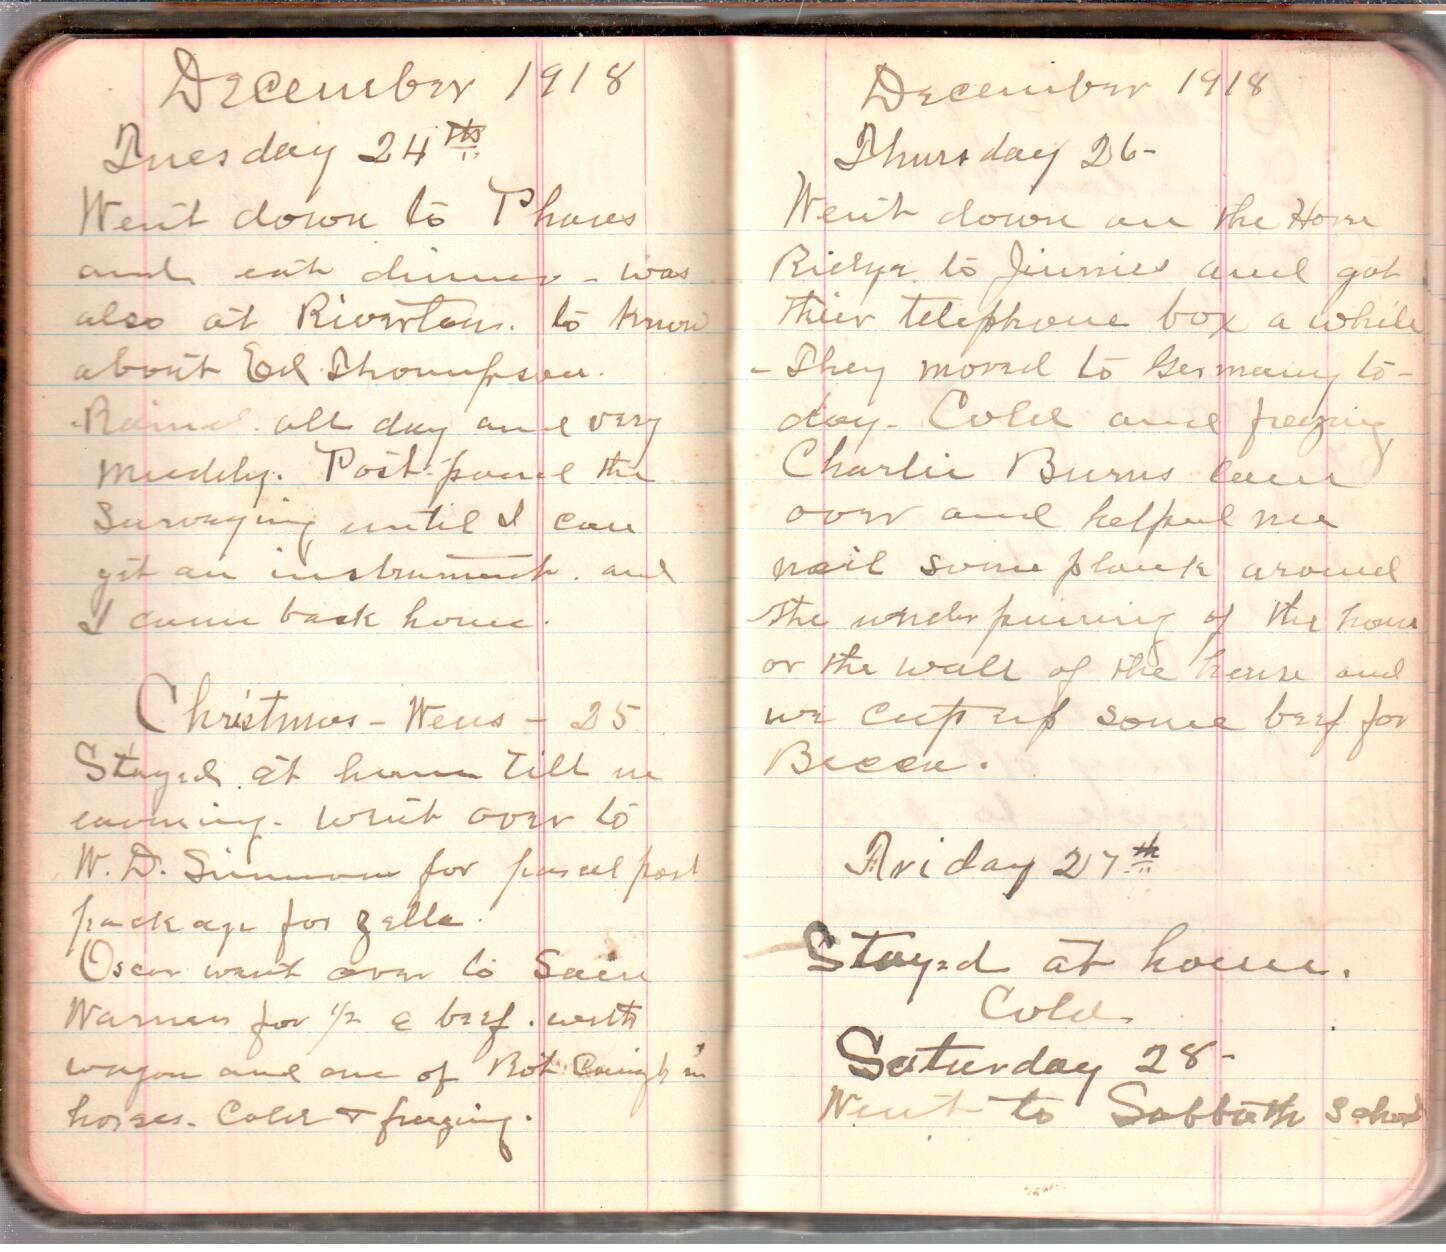 December 1918
Tuesday 24th
Went down to Phares
and eat dinner - was
also at Riverton. to know
about Ed. Thompson.
Rained all day and very
muddy. Post-poned the
Surveying until I can
git an instrument. and
I came back home.
Christmas - Wens - 25
Stayed at home till in
evening. went over to
W. D. Simmons for parcel post
package for Zella.
Oscar went over to Sam
Warners for 1/2 a beef. with
wagon and one of
horses. Cold & freezing.
December 1918
Thursday 26-
Went down on the Horse
Ridge to Jinnies and got
thier telephone box a while
- They moved to Germany to-
day. Cold and freezing
Charlie Burns came
over and helped me
nail some plank around
the underpinning of the house
or the wall of the house and
we cut up some beef for
Becca.
Friday 27th
Stayed at home.
Cold.
Saturday 28-
Went to Sabbath School